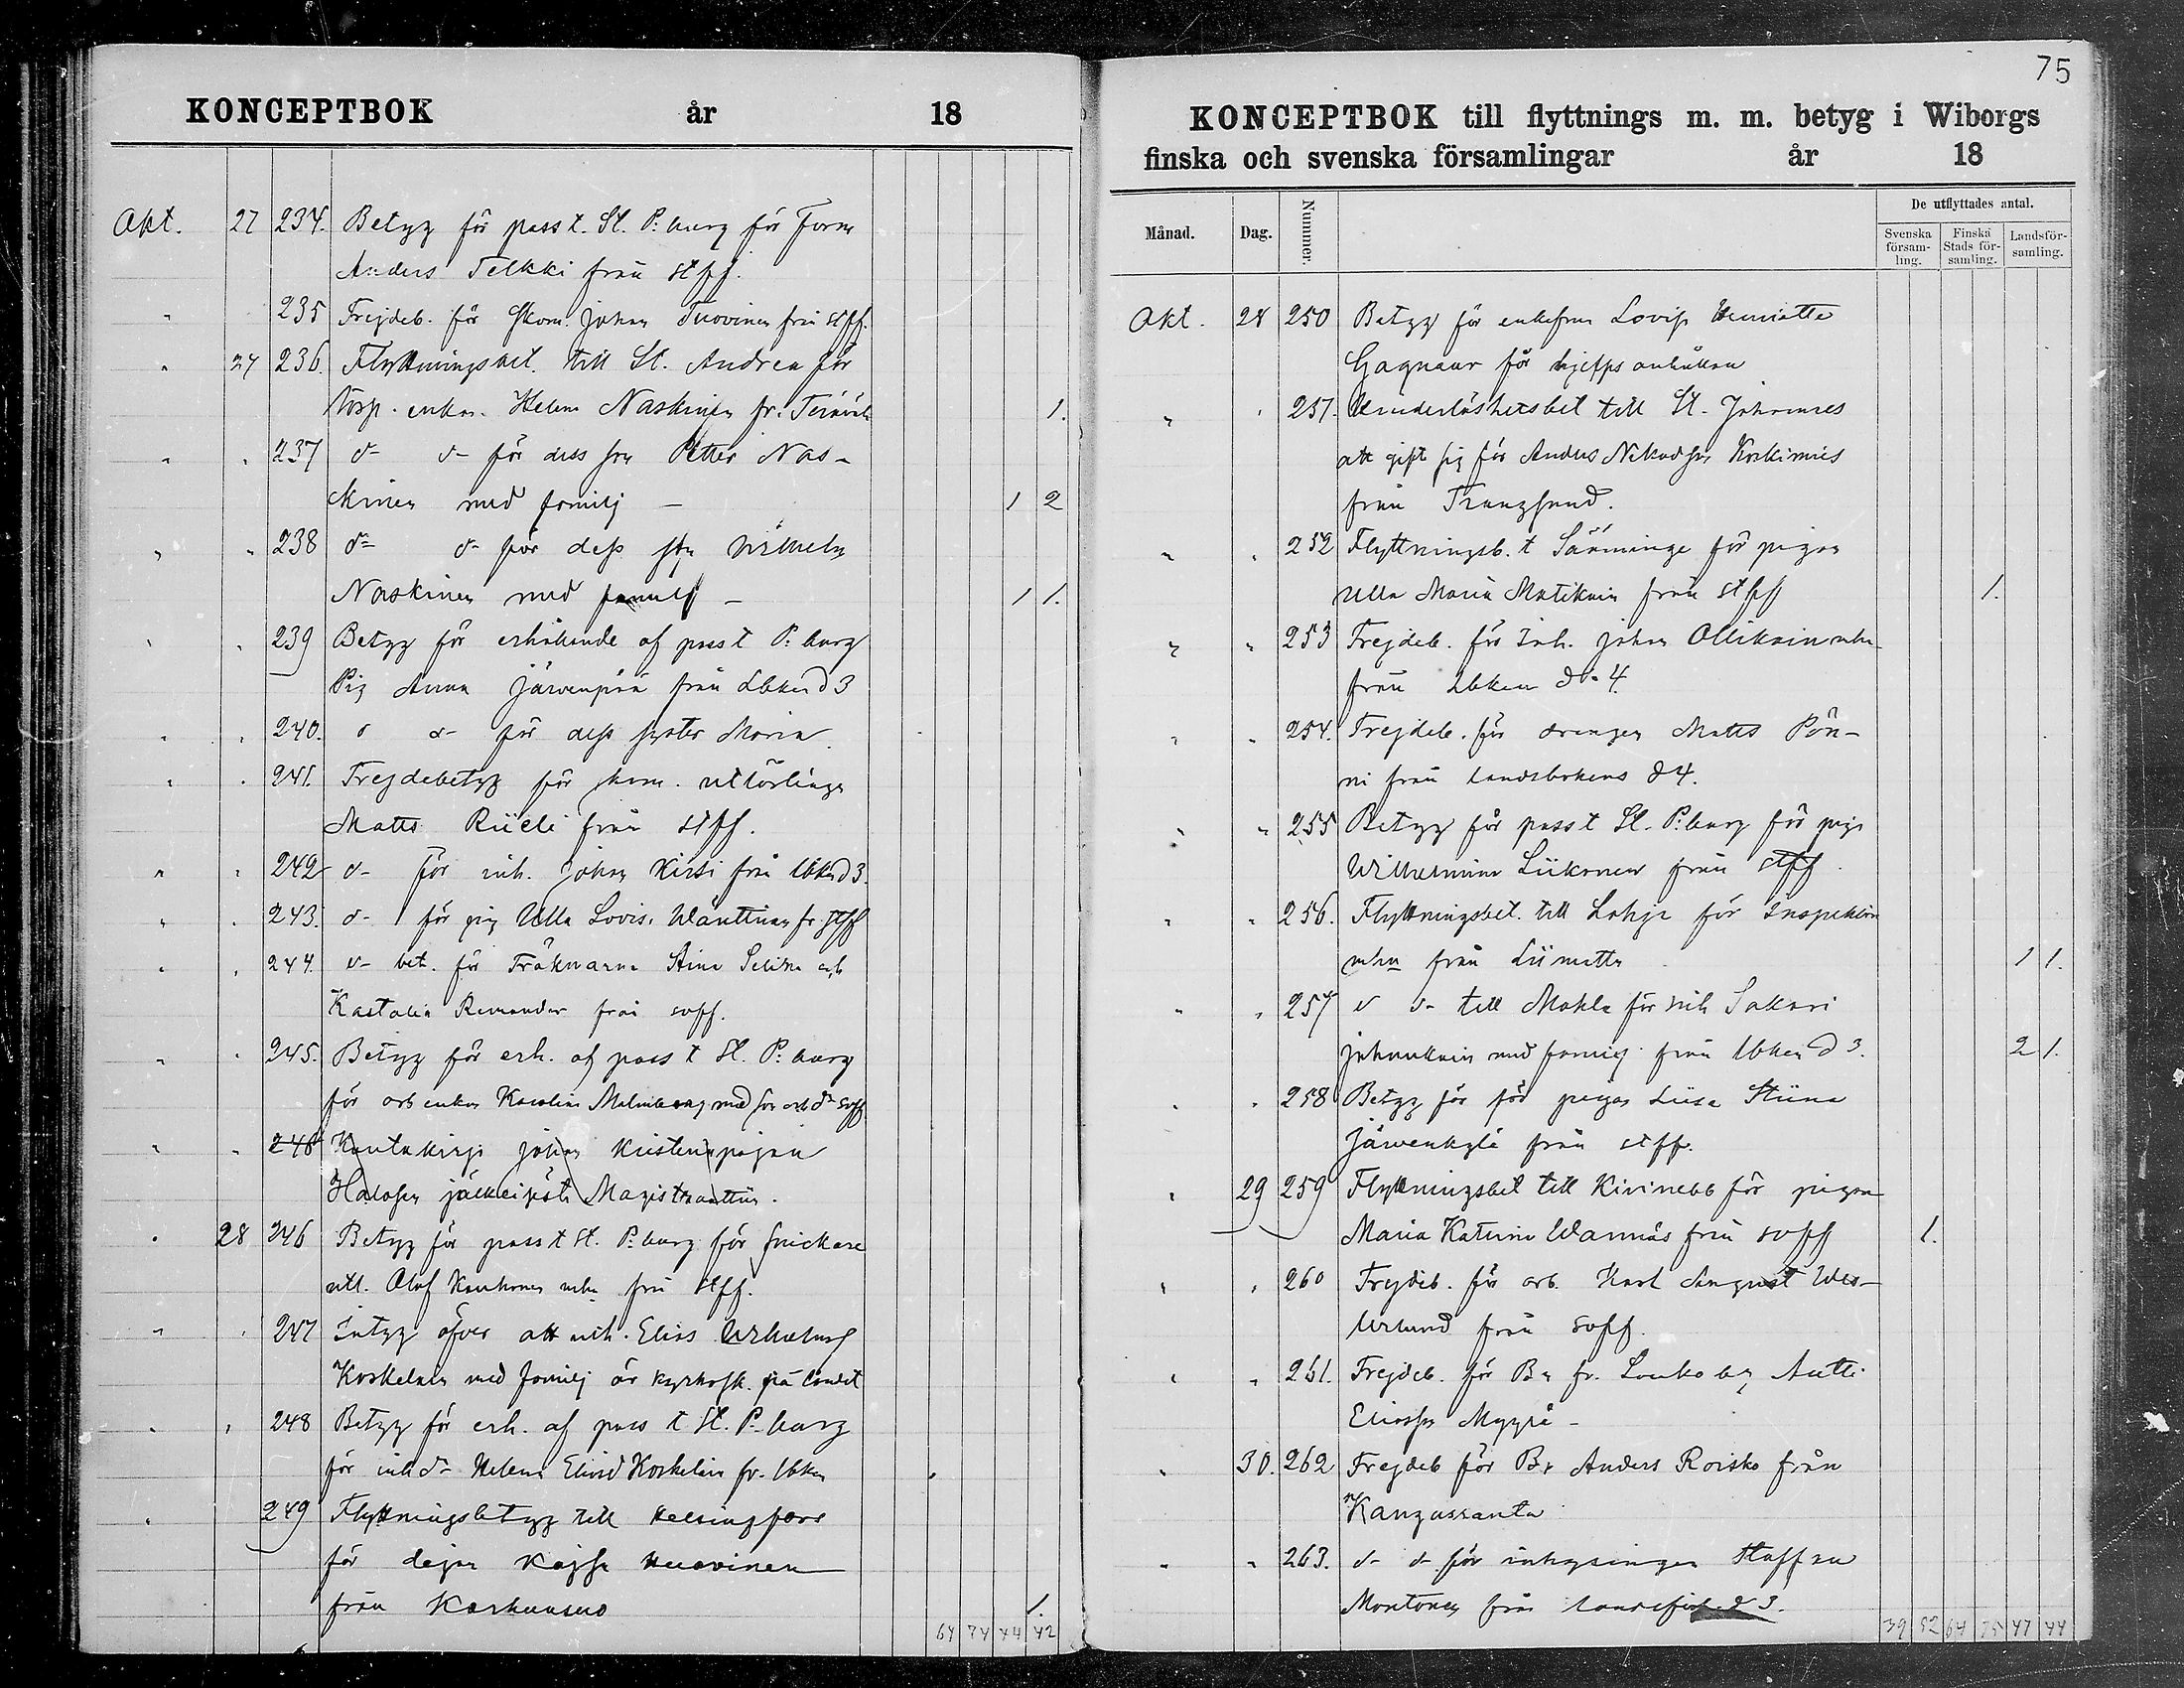 KONCEPTBOK år 18
Okt. 27 234. Betyg för pass t. St. P:burg för Form
Anders Telkki från stff.
" 235 Frejdeb. för skom. Johan Tuovinen från stff.
" 27 236. Flyttningsbet. till St. Andrea för
torp. enkan Helena Naskinen fr. 1.
" " 237 d- d- för dess son Petter Nas-
kinen med familj — 1 2
" " 238 d- d- för dess son Wilhelm
Naskinen med familj — 1 1.
" " 239 Betyg för erhållande af pass t P:burg
Pig Anna Järvenpää från Lbken d 3
" " 240. d d- för dess syster Maria
" " 241. Frejdebetyg för kom.
Matts från stff.
" " 242 d- för inh. Johan Kirsi från lbken d 3.
" " 243. d- för pig Ulla Lovisa Wänttinen fr. stff
" " 244. d- bet. för Fröknarna Aina Selina och
Kastalia från soff.
" " 245. Betyg för erh. af pass t St. P:burg
för arb enkan Karolina Malmberg med son och dr soff
" " 246 Kuulukirja Johan Kristianpojan
Halosen Magistraattiin.
" 28 246 Betyg för pass t St. P:burg för snickare
utl. Olof Kauhonen mhu från stff.
" " 247 Intyg öfver att inh. Elias Wilhelmsf
Koskelain med familj är kyrkosk. på landet
" " 248 Betyg för erh. af pass t St. P-burg
för inh dr Helena Eliasd Koskelain fr. lbken
" 249 Flyttningsbetyg till Helsingfors
för dejan Kajsa Huovinen
från Karhusuo 1.
64 74 44 42
75
KONCEPTBOK till flyttnings m. m. betyg i Wiborgs
finska och svenska församlingar år 18
Månad. Dag. Nummer. De utflyttades antal.
Svenska församling. Finska Stads församling. Landsförsamling.
Okt. 28 250 Betyg för enkefru Lovisa Henriette
Gagnaur för hjelps anhållan
" " 251. Hinderlöshetsbet till St. Johannes
att gifta sig för Anders Nikodsson Koskimies
från Trångsund.
" " 252 Flyttningsb. t Säminge för pigan
Ulla Maria Matikain från stff 1.
" " 253 Frejdeb. för Inh. Johan Ollikain mhu
från lbken d. 4.
" " 254. Frejdeb. för drengen Matts Pön-
ni från landsbokens d 4.
" " 255 Betyg för pass t St. P:burg för piga
Wilhelmina Liikanen från stff.
" " 256. Flyttningsbet. till Lohja för Inspektorn
mhu från Liimatta 1 1.
" " 257 d d- till Mohla för inh Sakari
Johankain med familj från lbken d 3. 2 1.
" " 258 Betyg för för pigan Liisa Stiina
Järvenkylä från stff.
" 29 259 Flyttningsbet till Kivinebb för pigan
Maria Katrina Warmäs från soff 1.
" " 260 Frejdeb. för arb. Karl August Wes-
terlund från soff.
" " 261. Frejdeb. för Bn fr. Antti
Eliasson Myyrä -
" 30. 262 Frejdeb för Bn Anders Roisko från
Kangasranta
" " 263. d- d- för inhysingen Staffan
Montonen från landsförs. d 3.
39 52 64 75 47 44